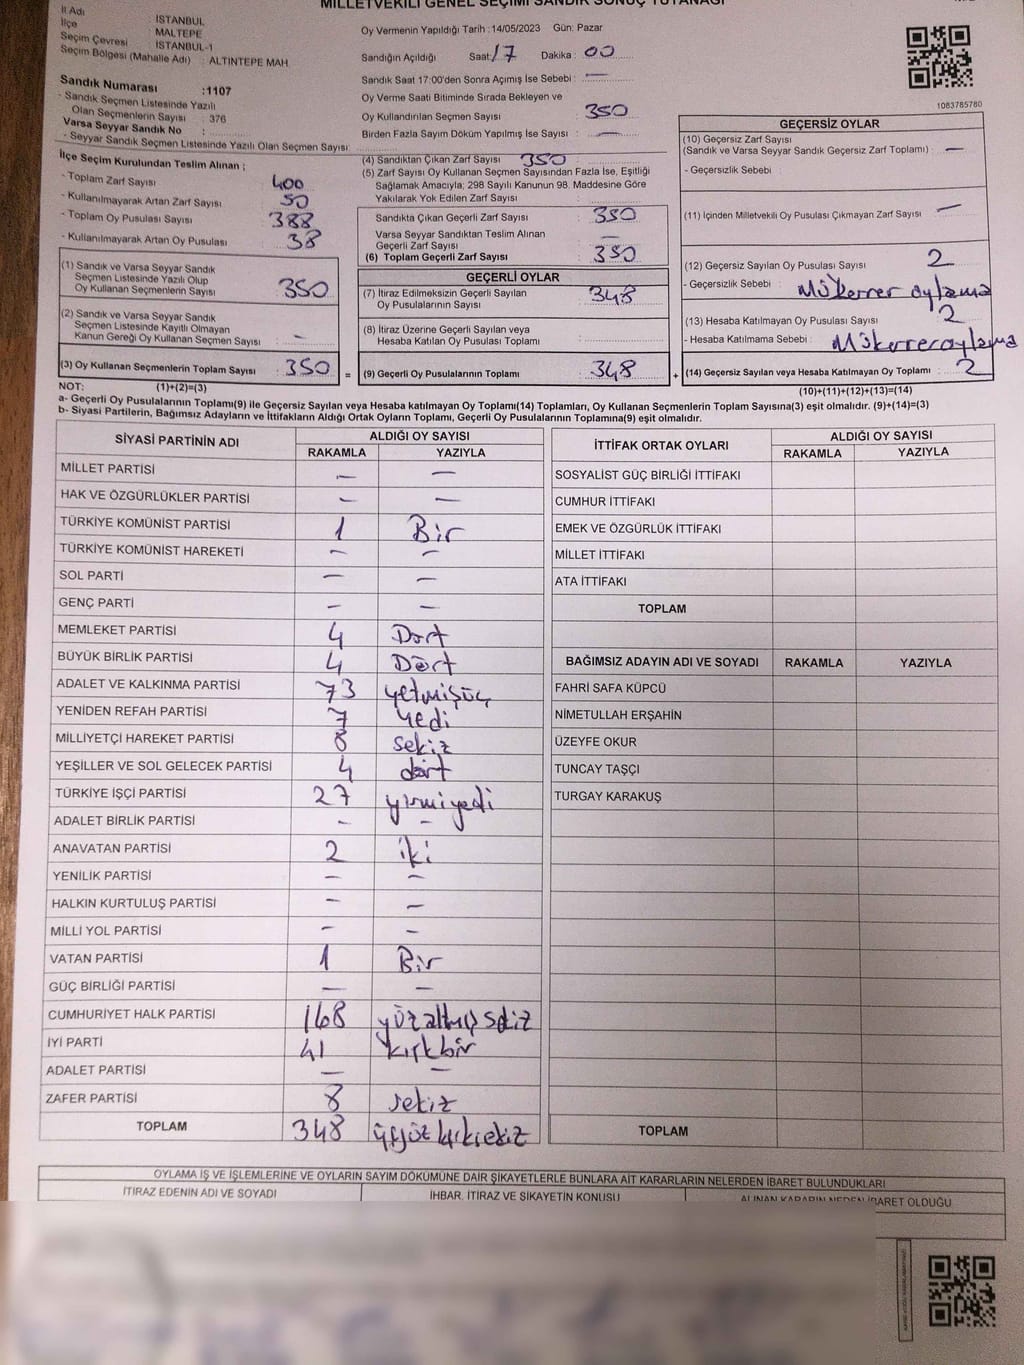 MİLLETVEKİLİ GENEL SEÇİMİ SANDIK SONUÇ TUTANAĞI
İl Adı İSTANBUL
İlçe MALTEPE
Seçim Çevresi İSTANBUL-1
Seçim Bölgesi (Mahalle Adı) : ALTINTEPE MAH.
Oy Vermenin Yapıldığı Tarih : 14/05/2023 Gün: Pazar
Sandığın Açıldığı Saat 17 Dakika : 00
Sandık Saat 17:00'den Sonra Açımış İse Sebebi : —
Oy Verme Saati Bitiminde Sırada Bekleyen ve
Oy Kullandırılan Seçmen Sayısı : 350
Birden Fazla Sayım Döküm Yapılmış İse Sayısı : —
1083785780
Sandık Numarası :1107
- Sandık Seçmen Listesinde Yazılı
Olan Seçmenlerin Sayısı : 376
Varsa Seyyar Sandık No :
- Seyyar Sandık Seçmen Listesinde Yazılı Olan Seçmen Sayısı :
İlçe Seçim Kurulundan Teslim Alınan ;
- Toplam Zarf Sayısı : 400
- Kullanılmayarak Artan Zarf Sayısı : 50
- Toplam Oy Pusulası Sayısı : 388
- Kullanılmayarak Artan Oy Pusulası : 38
(1) Sandık ve Varsa Seyyar Sandık
Seçmen Listesinde Yazılı Olup
Oy Kullanan Seçmenlerin Sayısı : 350
(2) Sandık ve Varsa Seyyar Sandık
Seçmen Listesinde Kayıtlı Olmayan
Kanun Gereği Oy Kullanan Seçmen Sayısı : —
(3) Oy Kullanan Seçmenlerin Toplam Sayısı : 350 =
(4) Sandıktan Çıkan Zarf Sayısı : 350
(5) Zarf Sayısı Oy Kullanan Seçmen Sayısından Fazla İse, Eşitliği
Sağlamak Amacıyla; 298 Sayılı Kanunun 98. Maddesine Göre
Yakılarak Yok Edilen Zarf Sayısı :
Sandıkta Çıkan Geçerli Zarf Sayısı : 350
Varsa Seyyar Sandıktan Teslim Alınan
Geçerli Zarf Sayısı : —
(6) Toplam Geçerli Zarf Sayısı : 350
GEÇERLİ OYLAR
(7) İtiraz Edilmeksizin Geçerli Sayılan
Oy Pusulalarının Sayısı : 348
(8) İtiraz Üzerine Geçerli Sayılan veya
Hesaba Katılan Oy Pusulası Toplamı :
(9) Geçerli Oy Pusulalarının Toplamı : 348 +
GEÇERSİZ OYLAR
(10) Geçersiz Zarf Sayısı
(Sandık ve Varsa Seyyar Sandık Geçersiz Zarf Toplamı) : —
- Geçersizlik Sebebi :
(11) İçinden Milletvekili Oy Pusulası Çıkmayan Zarf Sayısı : —
(12) Geçersiz Sayılan Oy Pusulası Sayısı : 2
- Geçersizlik Sebebi : Mükerrer oylama
(13) Hesaba Katılmayan Oy Pusulası Sayısı : 2
- Hesaba Katılmama Sebebi : Mükerrer oylama
(14) Geçersiz Sayılan veya Hesaba Katılmayan Oy Toplamı : 2
NOT: (1)+(2)=(3) (10)+(11)+(12)+(13)=(14)
a- Geçerli Oy Pusulalarının Toplamı(9) ile Geçersiz Sayılan veya Hesaba katılmayan Oy Toplamı(14) Toplamları, Oy Kullanan Seçmenlerin Toplam Sayısına(3) eşit olmalıdır. (9)+(14)=(3)
b- Siyasi Partilerin, Bağımsız Adayların ve İttifakların Aldığı Ortak Oyların Toplamı, Geçerli Oy Pusulalarının Toplamına(9) eşit olmalıdır.
SİYASİ PARTİNİN ADI ALDIĞI OY SAYISI
RAKAMLA YAZIYLA
MİLLET PARTİSİ — —
HAK VE ÖZGÜRLÜKLER PARTİSİ — —
TÜRKİYE KOMÜNİST PARTİSİ 1 Bir
TÜRKİYE KOMÜNİST HAREKETİ — —
SOL PARTİ — —
GENÇ PARTİ — —
MEMLEKET PARTİSİ 4 Dört
BÜYÜK BİRLİK PARTİSİ 4 Dört
ADALET VE KALKINMA PARTİSİ 73 yetmişüç
YENİDEN REFAH PARTİSİ 7 yedi
MİLLİYETÇİ HAREKET PARTİSİ 8 sekiz
YEŞİLLER VE SOL GELECEK PARTİSİ 4 dört
TÜRKİYE İŞÇİ PARTİSİ 27 yirmiyedi
ADALET BİRLİK PARTİSİ — —
ANAVATAN PARTİSİ 2 iki
YENİLİK PARTİSİ — —
HALKIN KURTULUŞ PARTİSİ — —
MİLLİ YOL PARTİSİ — —
VATAN PARTİSİ 1 Bir
GÜÇ BİRLİĞİ PARTİSİ — —
CUMHURİYET HALK PARTİSİ 168 yüzaltmışsekiz
İYİ PARTİ 41 kırkbir
ADALET PARTİSİ — —
ZAFER PARTİSİ 8 sekiz
TOPLAM 348 üçyüzkırksekiz
İTTİFAK ORTAK OYLARI ALDIĞI OY SAYISI
RAKAMLA YAZIYLA
SOSYALİST GÜÇ BİRLİĞİ İTTİFAKI
CUMHUR İTTİFAKI
EMEK VE ÖZGÜRLÜK İTTİFAKI
MİLLET İTTİFAKI
ATA İTTİFAKI
TOPLAM
BAĞIMSIZ ADAYIN ADI VE SOYADI RAKAMLA YAZIYLA
FAHRİ SAFA KÜPCÜ
NİMETULLAH ERŞAHİN
ÜZEYFE OKUR
TUNCAY TAŞÇI
TURGAY KARAKUŞ
TOPLAM
OYLAMA İŞ VE İŞLEMLERİNE VE OYLARIN SAYIM DÖKÜMÜNE DAİR ŞİKAYETLERLE BUNLARA AİT KARARLARIN NELERDEN İBARET BULUNDUKLARI
İTİRAZ EDENİN ADI VE SOYADI İHBAR, İTİRAZ VE ŞİKAYETİN KONUSU ALINAN KARARIN NEDEN İBARET OLDUĞU